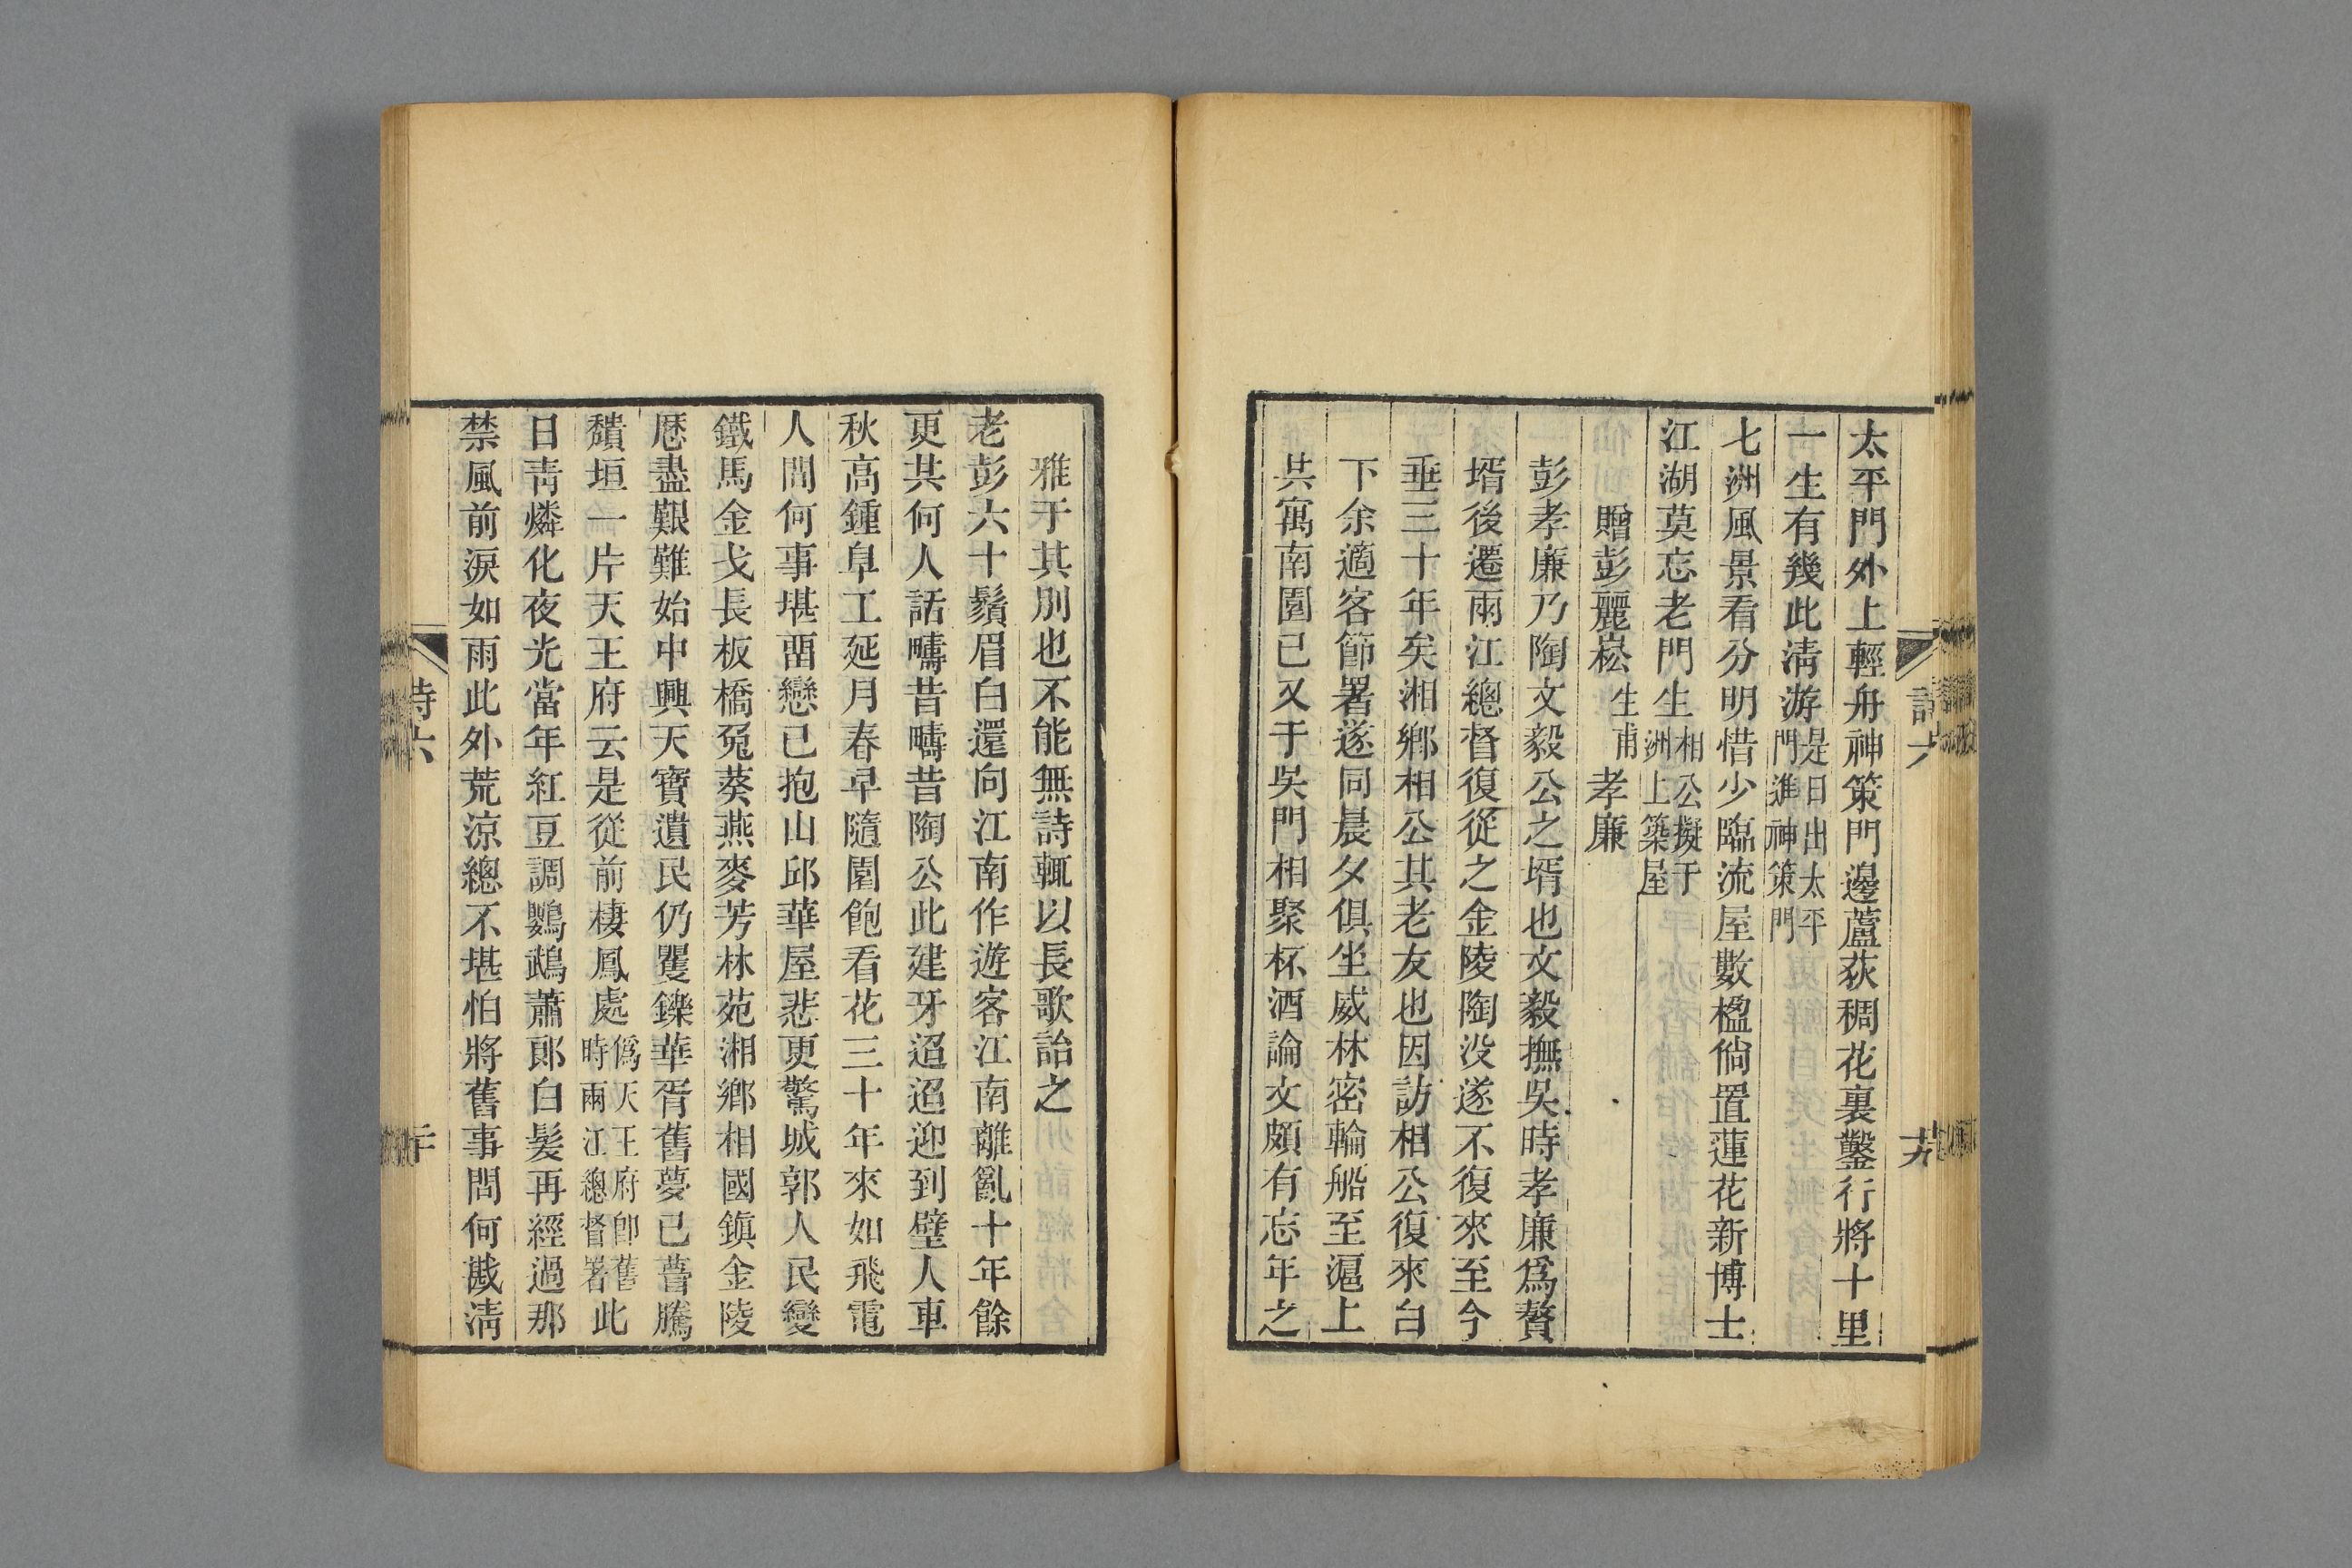 太平門外上輕舟神策門邊蘆荻稠花裏鑿行將十里
一生有幾此清游是日出太平門進神策門
七洲風景看分明惜少臨流屋數楹倘置蓮花新博士
江湖莫忘老門生相公擬于洲上築屋
贈彭麗崧生甫孝廉
彭孝廉乃陶文毅公之壻也文毅撫吳時孝廉爲贅
壻後遷兩江總督復從之金陵陶没遂不復來至今
垂三十年矣湘鄉相公其老友也因訪相公復來白
下余適客節署遂同晨夕俱坐威林密輪船至滬上
共寓南園已又于吳門相聚杯酒論文頗有忘年之
詩六
雅于其別也不能無詩輒以長歌詒之
老彭六十鬚眉白還向江南作遊客江南離亂十年餘
更共何人話疇昔疇昔陶公此建牙迢迢迎到璧人車
秋高鍾阜工延月春早隨園飽看花三十年來如飛電
人間何事堪畱戀已抱山邱華屋悲更驚城郭人民變
鐵馬金戈長板橋兔葵燕麥芳林苑湘鄉相國鎮金陵
歷盡艱難始中興天寶遺民仍矍鑠華胥舊夢已瞢騰
頹垣一片天王府云是從前棲鳳處僞天王府卽舊時兩江總督署此
日靑燐化夜光當年紅豆調鸚鵡蕭郎白髮再經過那
禁風前淚如雨此外荒涼總不堪怕將舊事問何戡淸
詩六